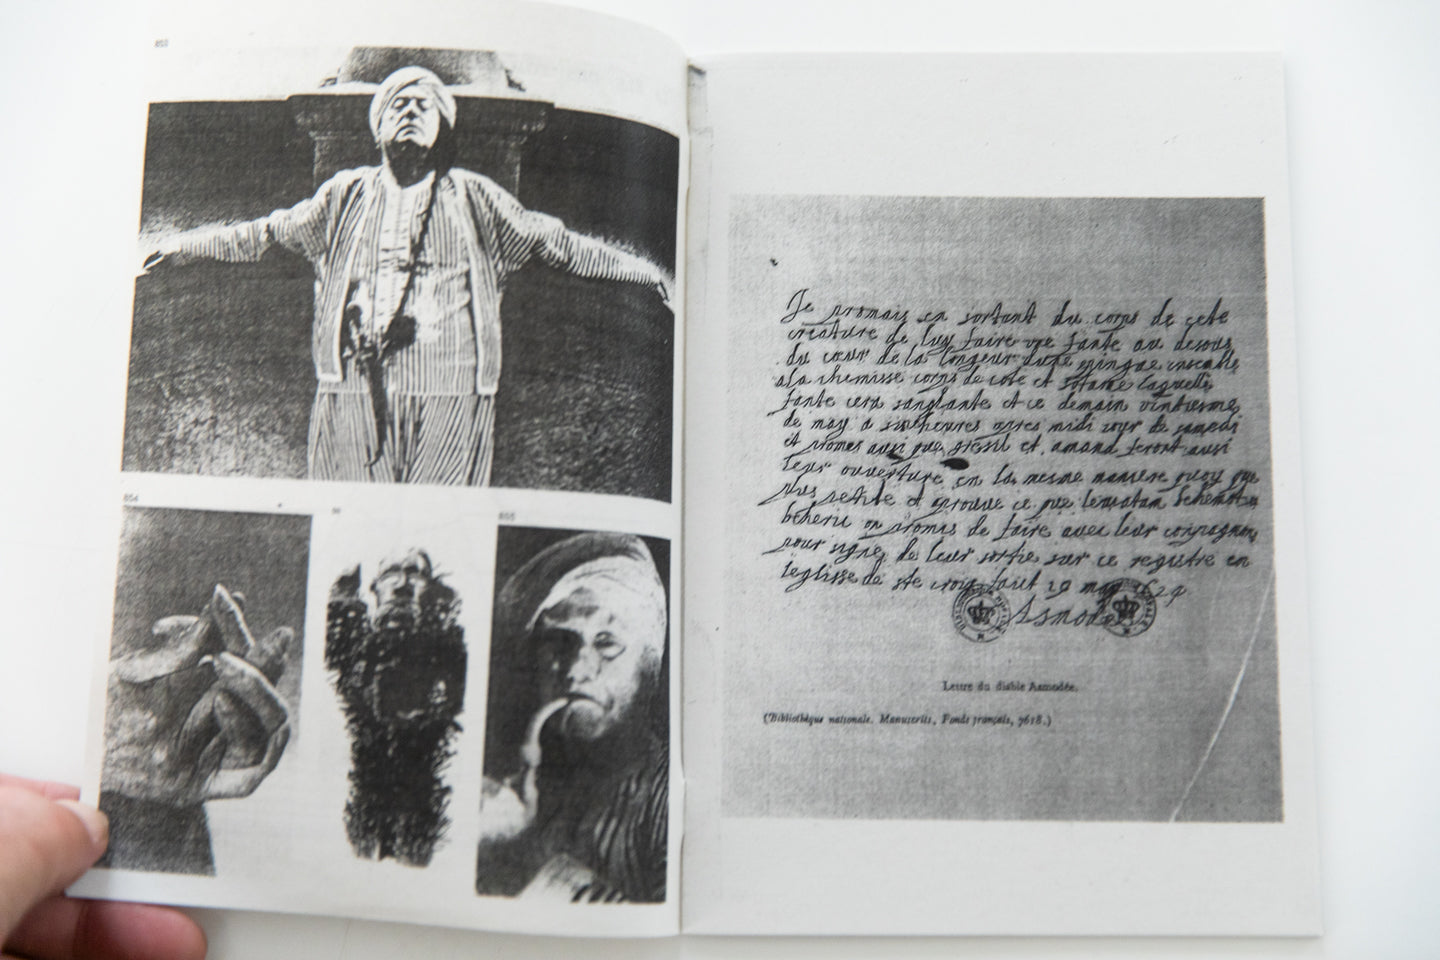 853
854
855
Je promais en sortant du corps de cete
creature de luy faire une fante au desous
du cœur de la longeur dune pingue ensamble
a la chemisse corps de cote et sotane laquelle
fante cera sanglante et ce demain vintiesme
de may a sinc heures apres midi jour de samedi
et promes ausi que gresil et amand feront ausi
leur ouverture en la mesme maniere quoy que
plus petite et aprouve ce que leviatam behemot
beherie on promis de faire avec leur compagnon
pour signe de leur sortie sur ce registre en
leglisse de ste croix faict 19 may 1629
Asmodee
Lettre du diable Asmodée.
(Bibliothèque nationale. Manuscrits, Fonds français, 7618.)